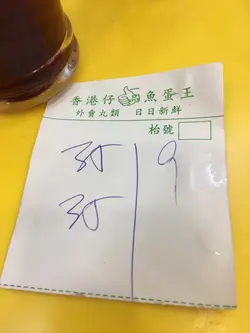 香港仔魚蛋王
外賣丸類 日日新鮮
枱號
35 9
35